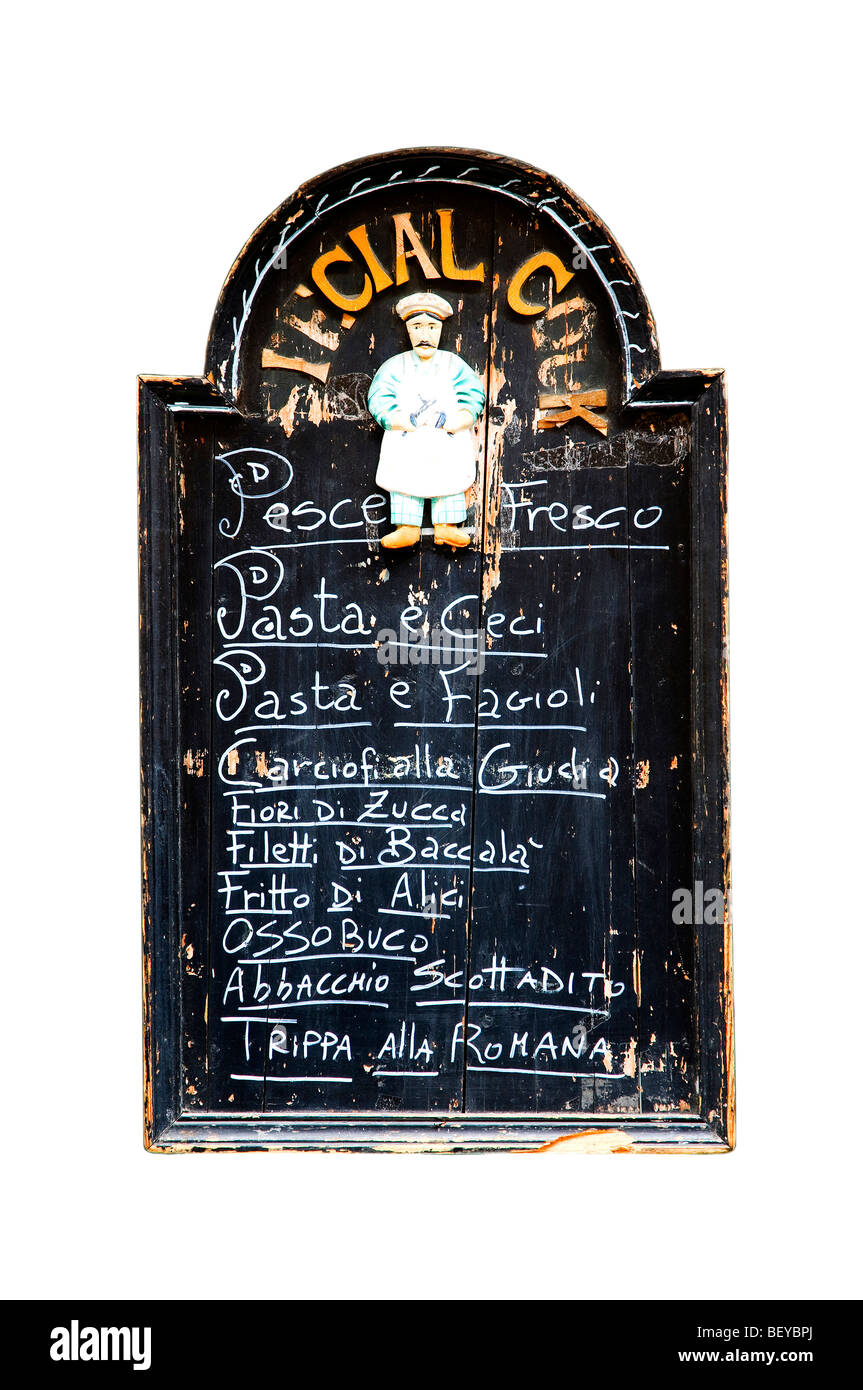 ECIAL COOK
Pesce Fresco
Pasta e Ceci
Pasta e Fagioli
Carciofi alla Giudia
Fiori Di Zucca
Filetti Di Baccalà
Fritto Di Alici
OSSOBUCO
Abbacchio Scottadito
TRIPPA allA ROMANA
alamy
Image ID: BEYBPJ
www.alamy.com